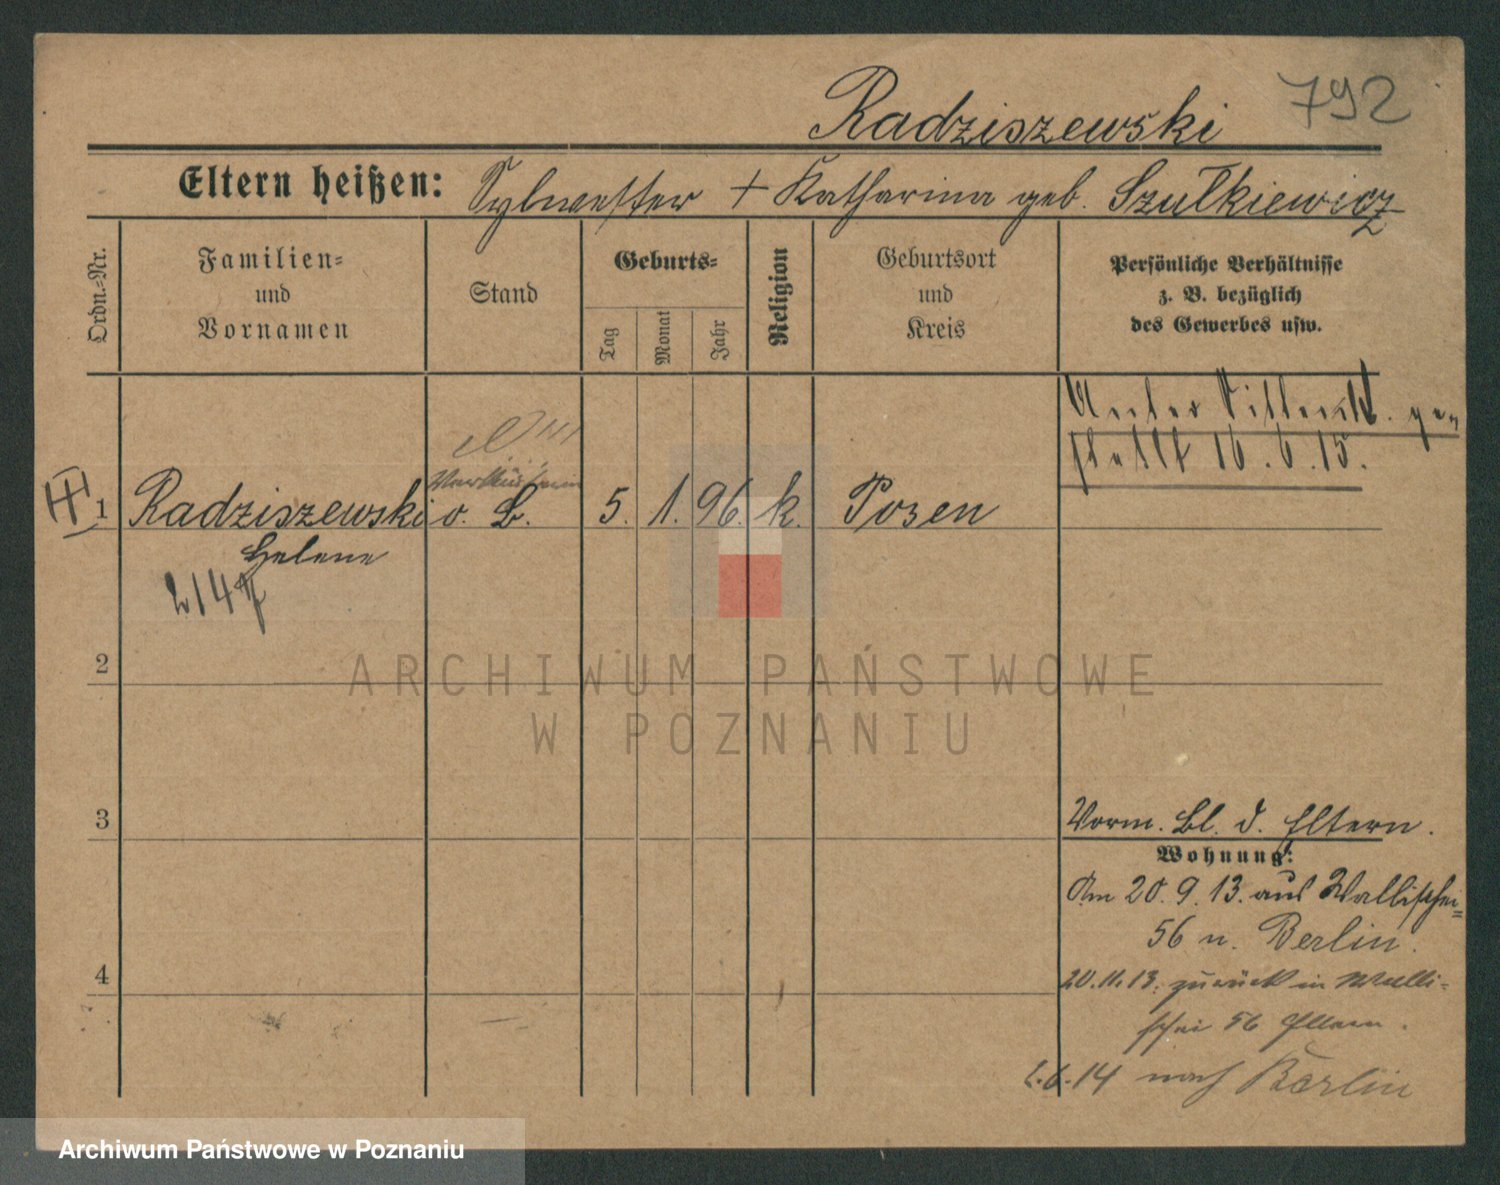 792
Radziszewski
Eltern heißen: Sylwester + Katharina geb. Szulkiewicz
Ordn.-Nr.
Familien-
und
Vornamen
Stand
Geburts-
Tag
Monat
Jahr
Religion
Geburtsort
und
Kreis
Persönliche Verhältnisse
z. B. bezüglich
des Gewerbes usw.
Unter Sittenk. ge
stellt 16.6.15.
Verkäuferin
1 Radziszewski o. B. 5. 1. 96. k. Posen
Helene
2
ARCHIWUM PAŃSTWOWE
W POZNANIU
3
Vorm. Bl. d. Eltern.
Wohnung:
Am 20.9.13. aus Wallischei=
56 n. Berlin.
4
20.11.13. zurück in Walli=
schei 56 Eltern.
2.6.14 nach Berlin
Archiwum Państwowe w Poznaniu